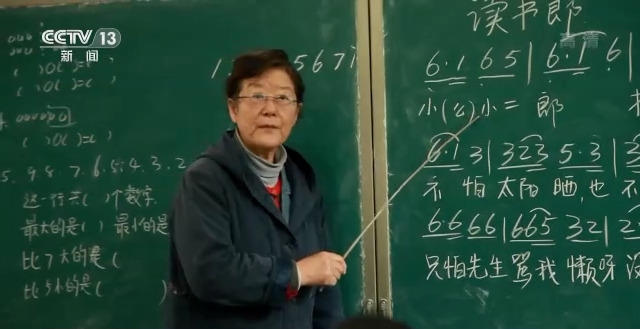 CCTV 13
新闻
高清
( )○( )=(
( )○( )=( )
( )○( )=( )
5. 9. 8. 7. 6. 5. 4. 3. 2
这一行共( )个数字
最大的是( ) 最小的是
比7大的是(
比5小的是( )
5671̇
读书郎
6·1 65|6·1 6
小(公)小二 郎
6·1 3|323 5·3|
不 怕 太阳 晒,也 不
6·6 66|665 32|2
只怕先生骂我 懒呀 没